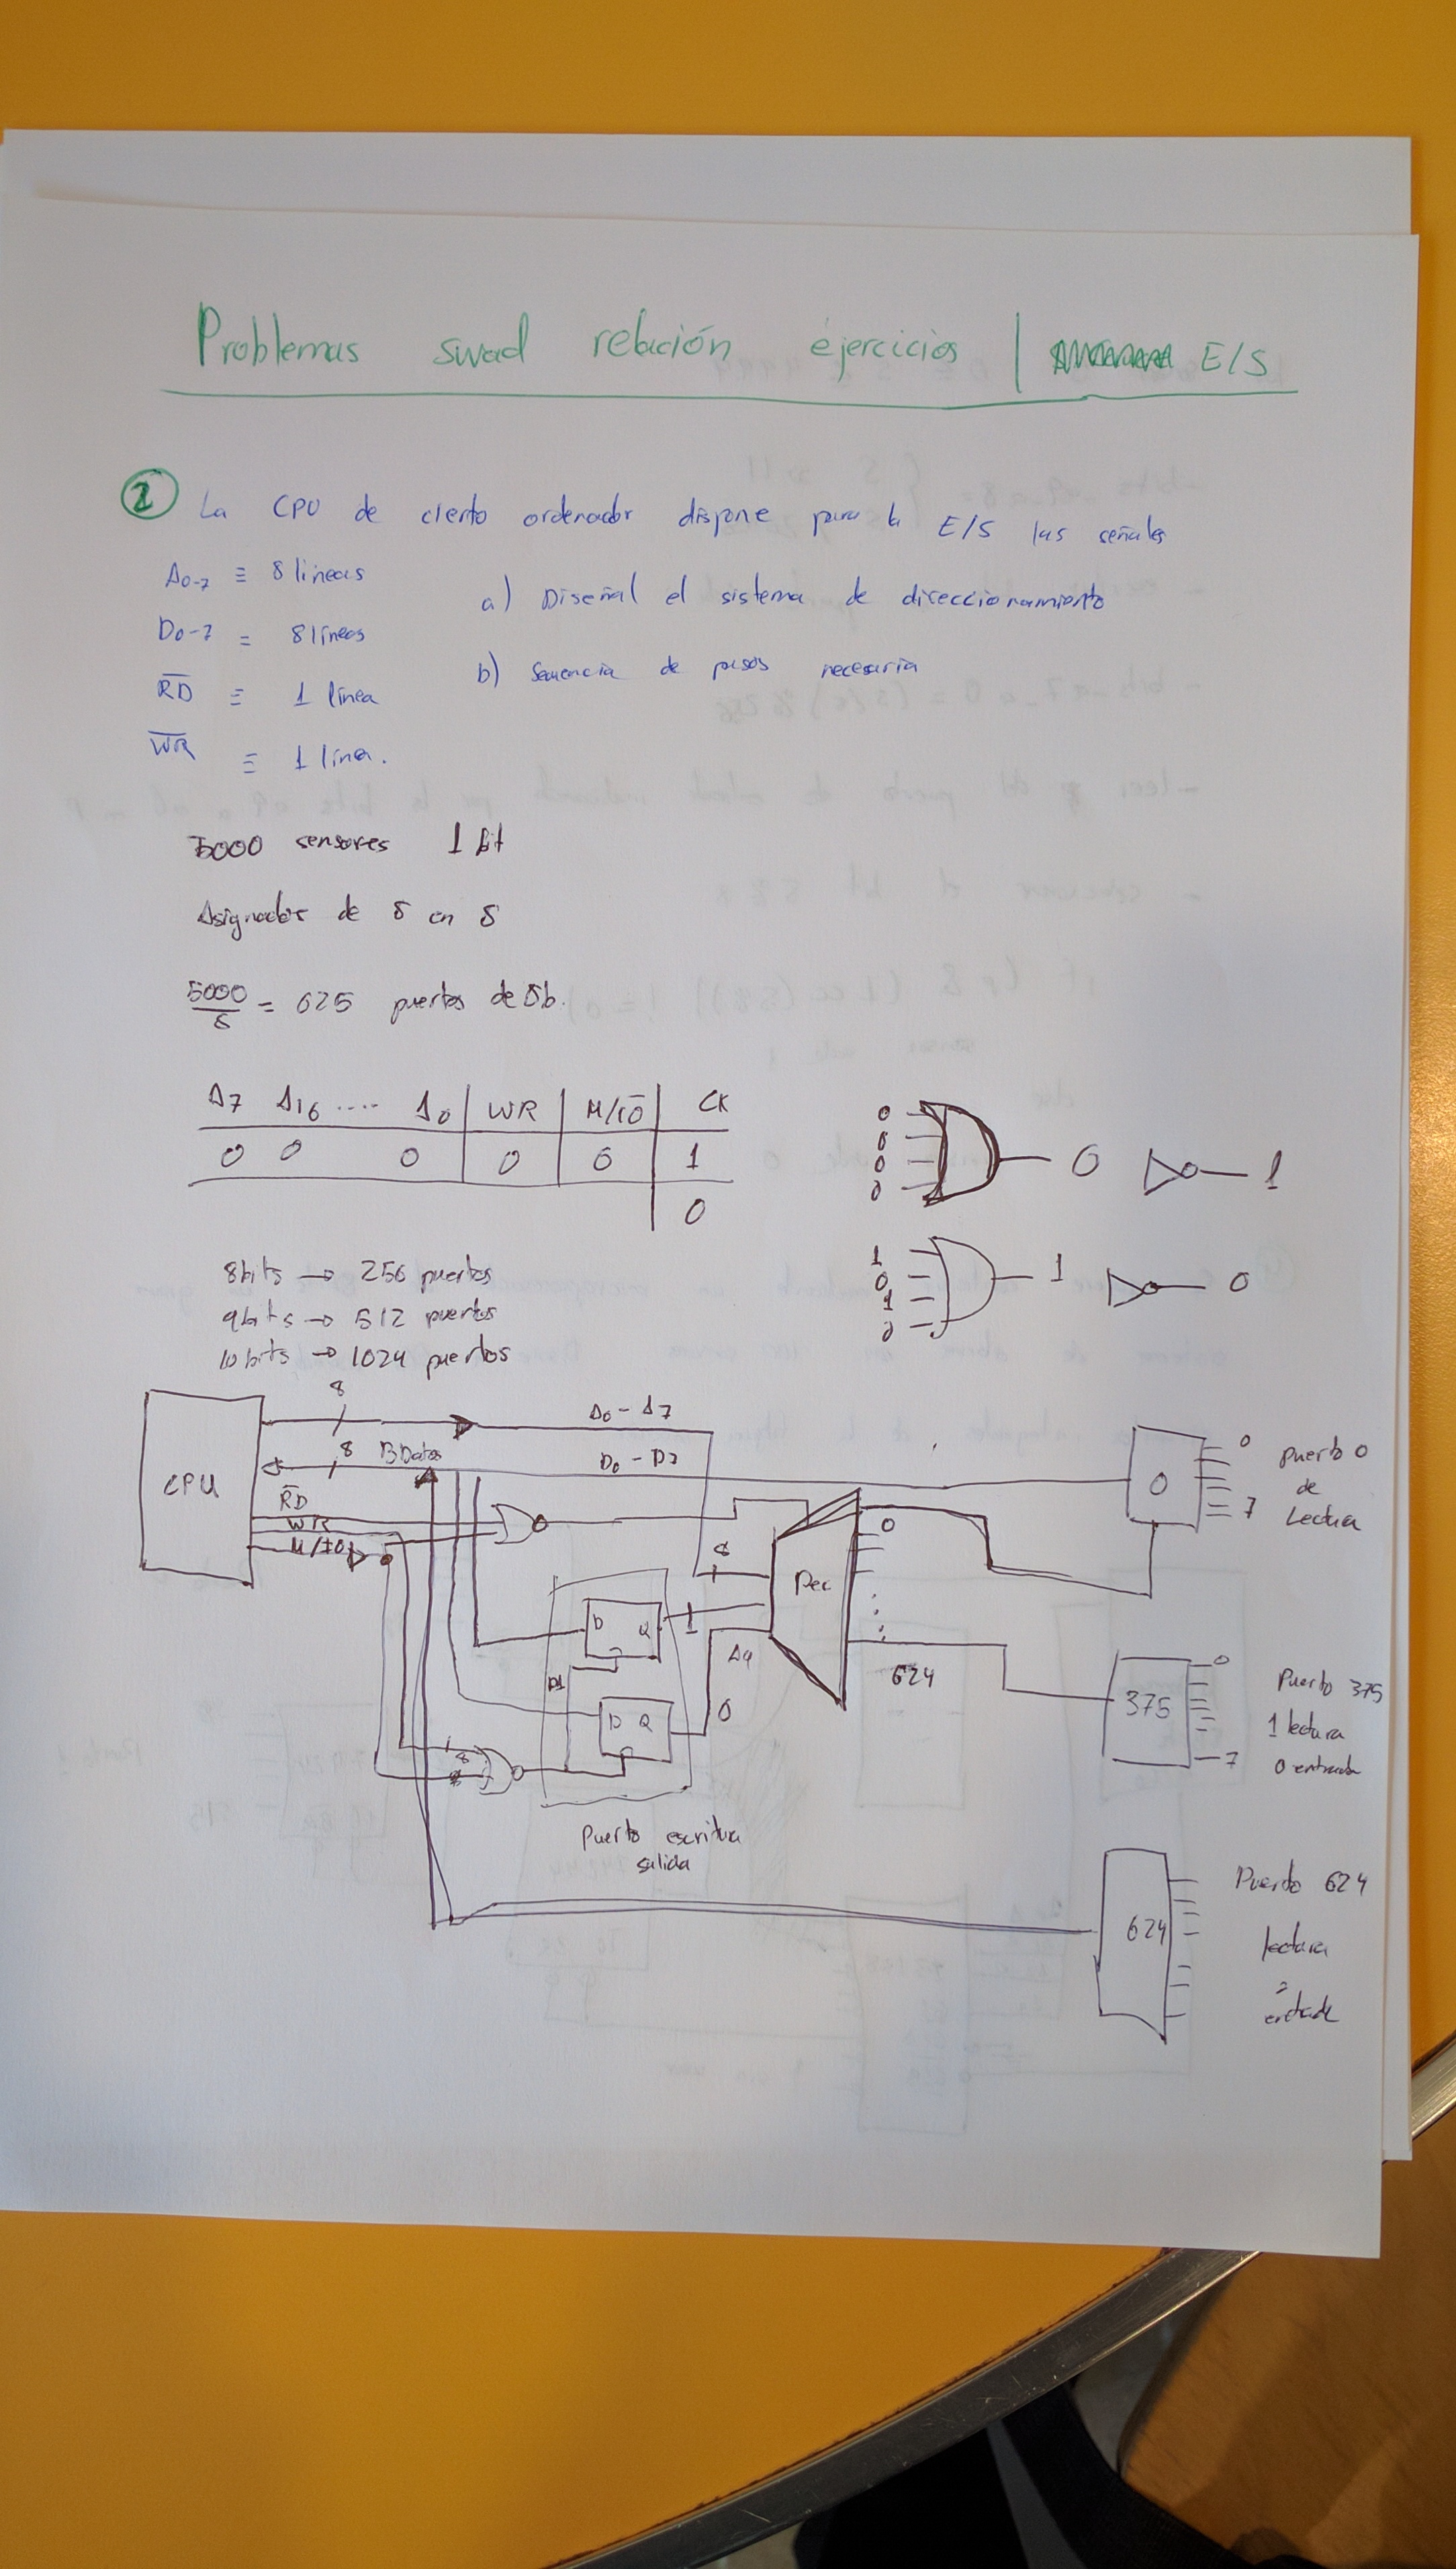 Problemas swad relación ejercicios | E/S
2 La CPU de cierto ordenador dispone para la E/S las señales
A0-7 ≡ 8 lineas
D0-7 = 8 líneas
RD ≡ 1 línea
WR ≡ 1 línea.
a) Diseñal el sistema de direccionamiento
b) Secuencia de pasos necesaria
5000 sensores 1 bit
Asignador de 8 en 8
5000/8 = 625 puertos de 8b.
A7 A16 .... A0 | WR | M/IO | CK
0 0 0 | 0 | 0 | 1
0
0
0
0
0
0 1
1
0
1
0
1 0
8bits → 256 puertos
9bits → 512 puertos
10bits → 1024 puertos
8
A0 - A7
8 BDatos
D0 - D7
CPU
RD
WR
M/IO
0
0
7
Puerto 0
de
Lectura
0
8
Dec
D Q
1
A9
D Q
0
624
375
0
7
Puerto 375
1 lectura
0 entrada
Puerto escritura
salida
624
Puerto 624
lectura